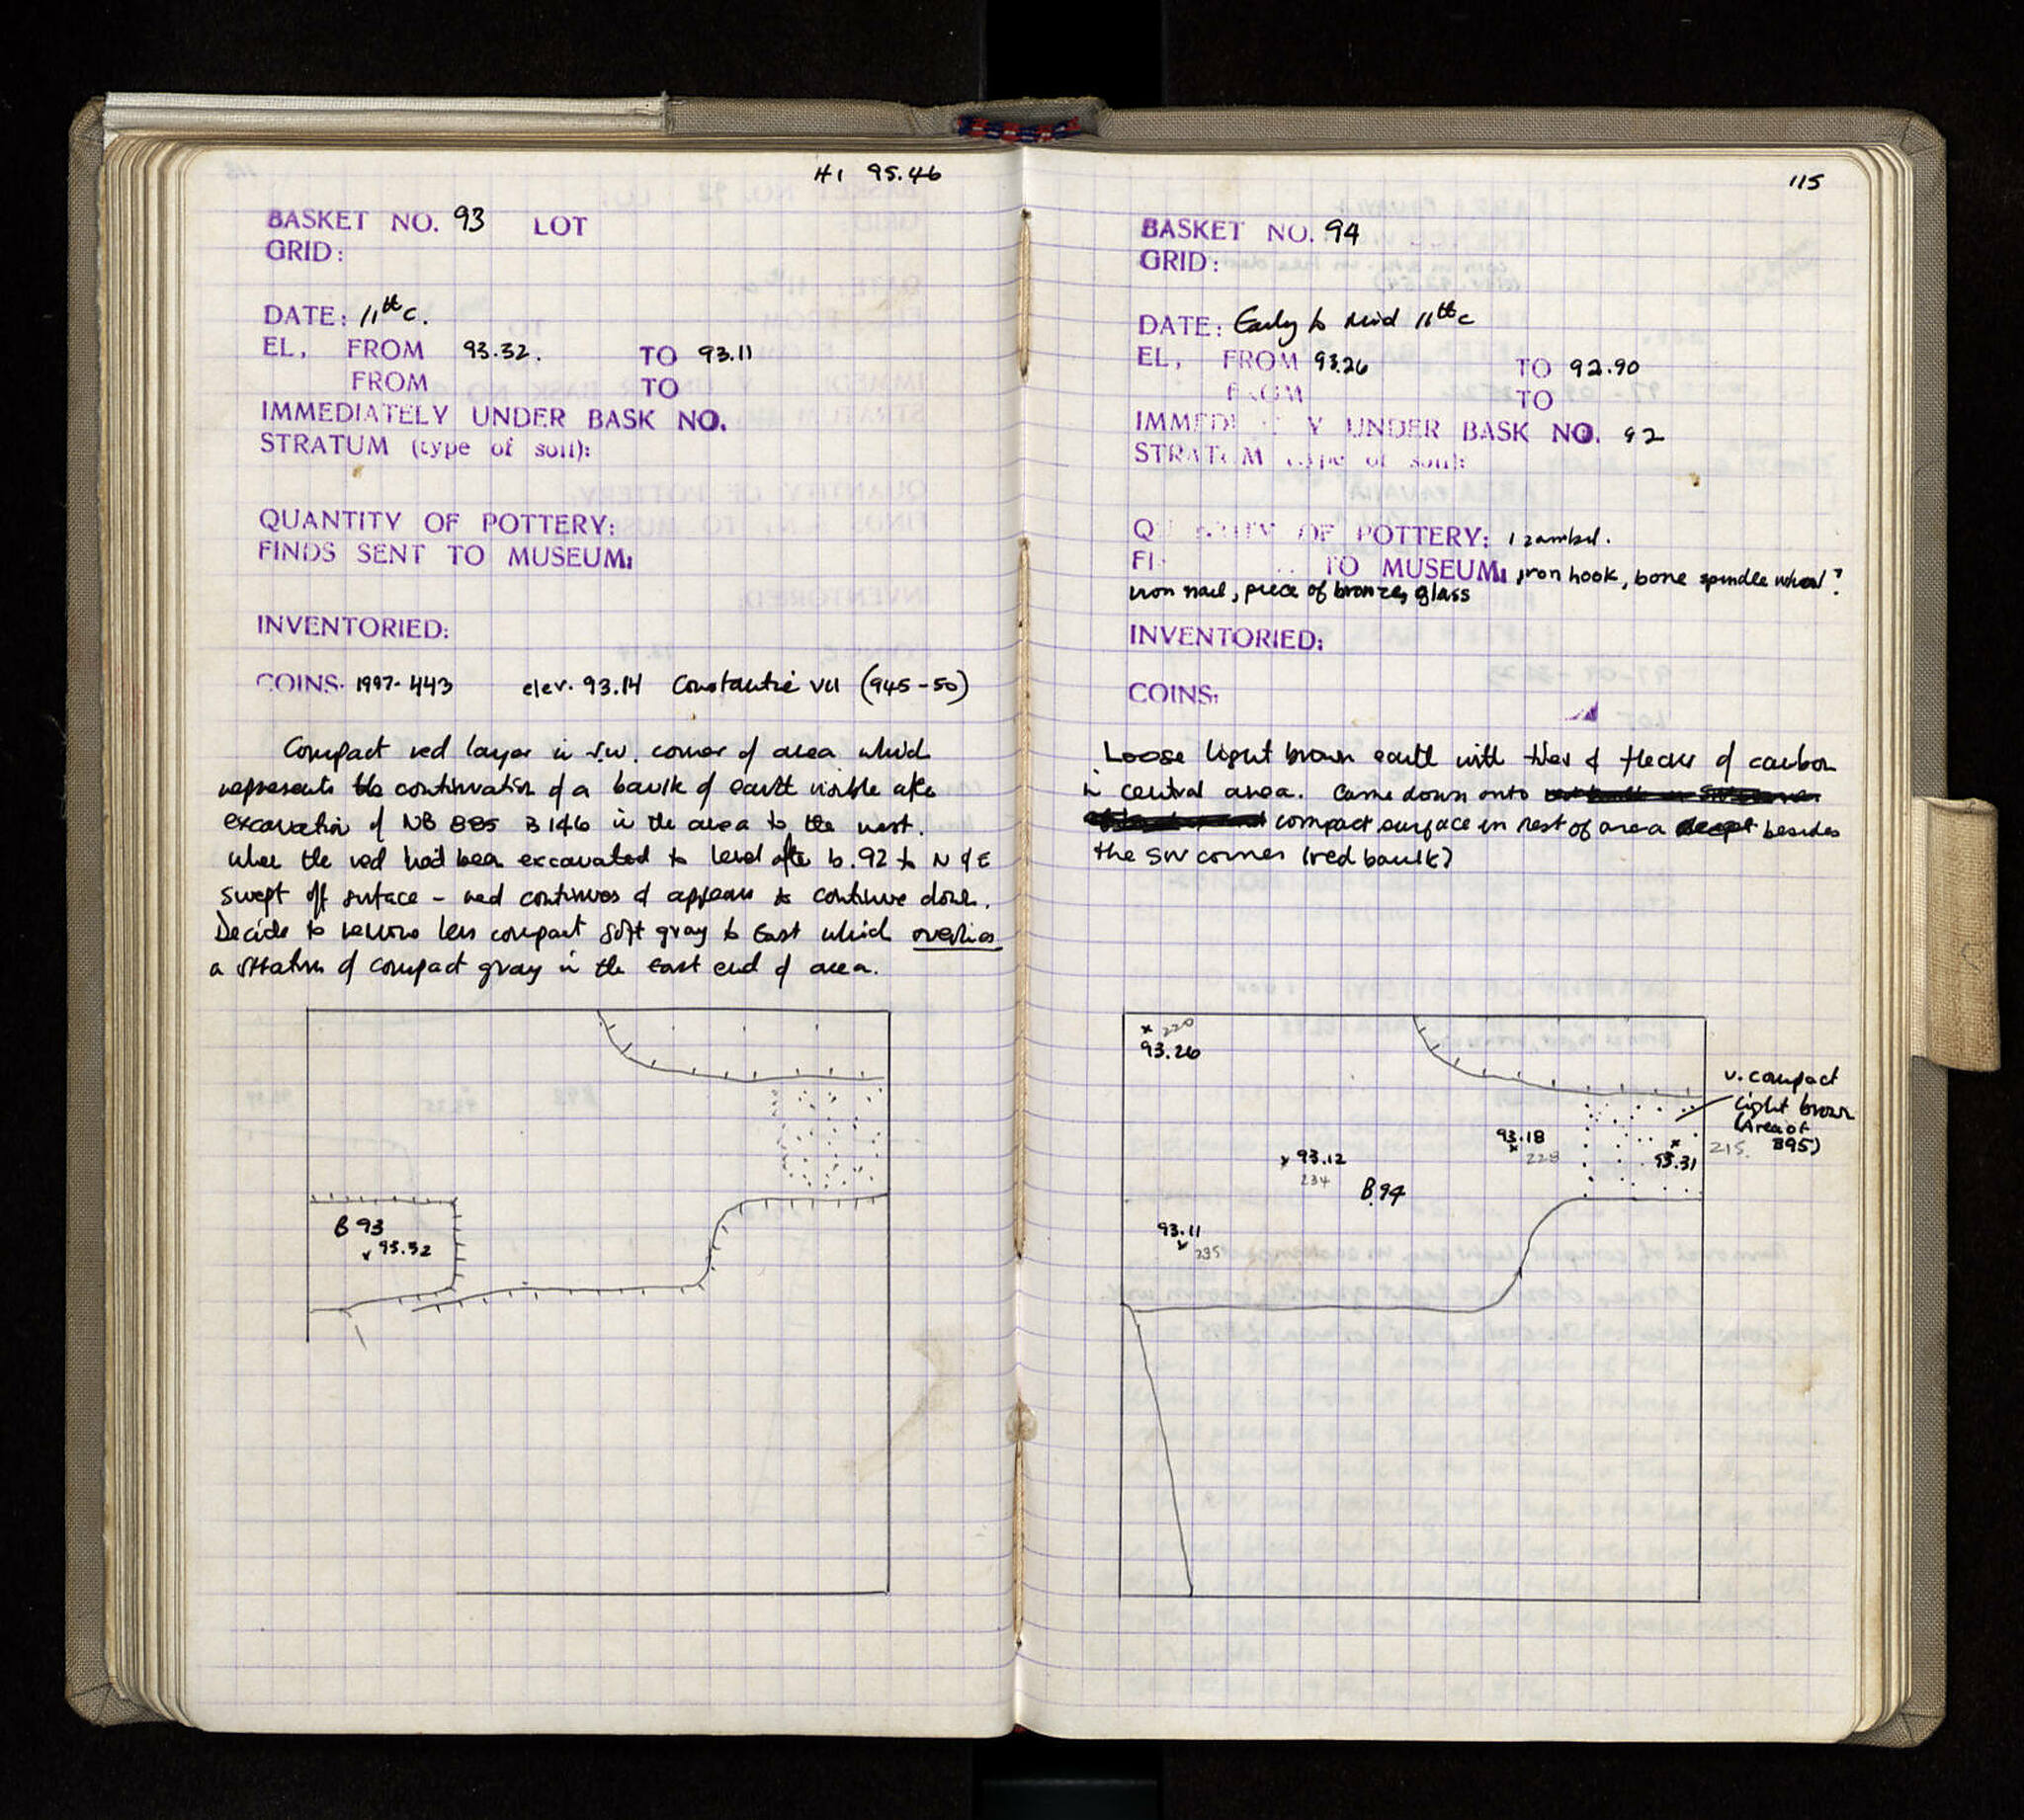 HI 95.46
BASKET NO. 93 LOT
GRID:
DATE: 11th c.
EL, FROM 93.32. TO 93.11
FROM TO
IMMEDIATELY UNDER BASK NO.
STRATUM (type of soil):
QUANTITY OF POTTERY:
FINDS SENT TO MUSEUM:
INVENTORIED:
COINS. 1997-443 elev. 93.14 Constantine VII (945-50)
Compact red layer in S.W. corner of area which
represents the continuation of a baulk of earth visible after
excavation of NB 885 B146 in the area to the west.
When the red had been excavated to level after b.92 to N & E
swept off surface - red continues & appears to continue down.
Decide to remove less compact soft gray to East which overlies
a stratum of compact gray in the East end of area.
B 93
93.32
115
BASKET NO. 94
GRID:
DATE: Early to Mid 11th c
EL, FROM 93.26 TO 92.90
FROM TO
IMMEDI Y UNDER BASK NO. 92
STRATUM type of soil:
QUANTITY OF POTTERY: 1 zambil.
FI TO MUSEUM: iron hook, bone spindle whorl?
iron nail, piece of bronze, glass
INVENTORIED:
COINS:
Loose light brown earth with tiles & flecks of carbon
in central area. Came down onto
compact surface in rest of area except besides
the SW corner (red baulk)
x 220
93.26
v. compact
light brown
(Area of
B95)
93.18
x 228
x
93.31
215.
x 93.12
234
B.94
93.11
x 235